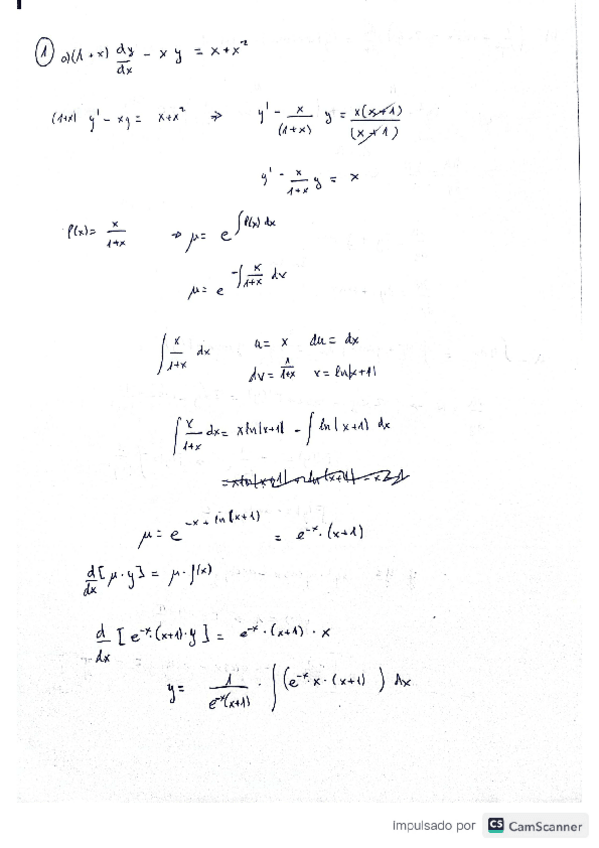 ① a) (1+x) dy/dx - xy = x+x²
(1+x) y' - xy = x+x² ⇒ y' - x/(1+x) y = x(x+1)/(x+1)
y' - x/1+x y = x
P(x)= x/1+x ⇒ μ= e^∫P(x) dx
μ= e^-∫x/1+x dx
∫ x/1+x dx u= x du= dx
dv= 1/1+x v= ln|x+1|
∫ x/1+x dx= x ln|x+1| - ∫ ln|x+1| dx
μ= e^-x+ln(x+1) = e^-x·(x+1)
d/dx [μ·y] = μ·f(x)
d/dx [e^-x·(x+1)·y] = e^-x·(x+1)·x
y= 1/e^-x(x+1) · ∫(e^-x·x·(x+1)) dx
Impulsado por CS CamScanner